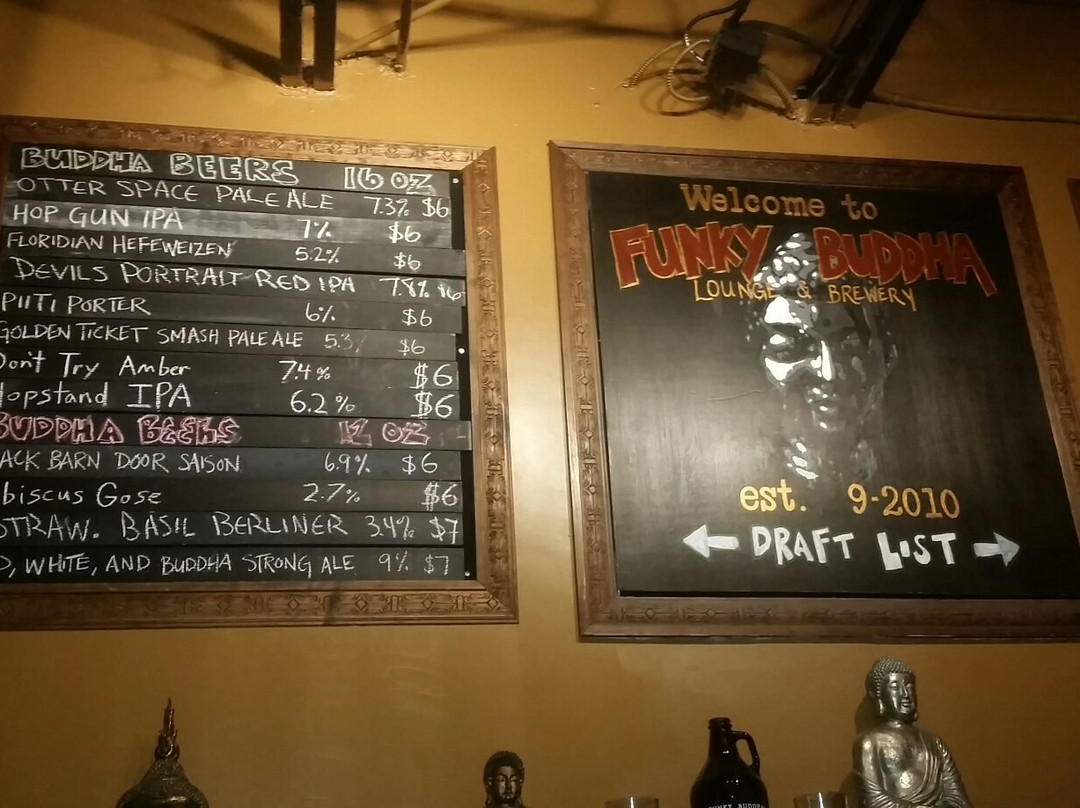 BUDDHA BEERS 16 OZ
OTTER SPACE PALE ALE 7.3% $6
HOP GUN IPA 7% $6
FLORIDIAN HEFEWEIZEN 5.2% $6
DEVILS PORTRAIT-RED IPA 7.8% $6
PIITI PORTER 6% $6
GOLDEN TICKET SMASH PALE ALE 5.3% $6
Don't Try Amber 7.4% $6
Hopstand IPA 6.2% $6
BUDDHA BEERS 12 OZ
ACK BARN DOOR SAISON 6.9% $6
biscus Gose 2.7% $6
STRAW. BASIL BERLINER 3.4% $7
D, WHITE, AND BUDDHA STRONG ALE 9% $7
Welcome to
FUNKY BUDDHA
LOUNGE & BREWERY
est. 9-2010
DRAFT LIST